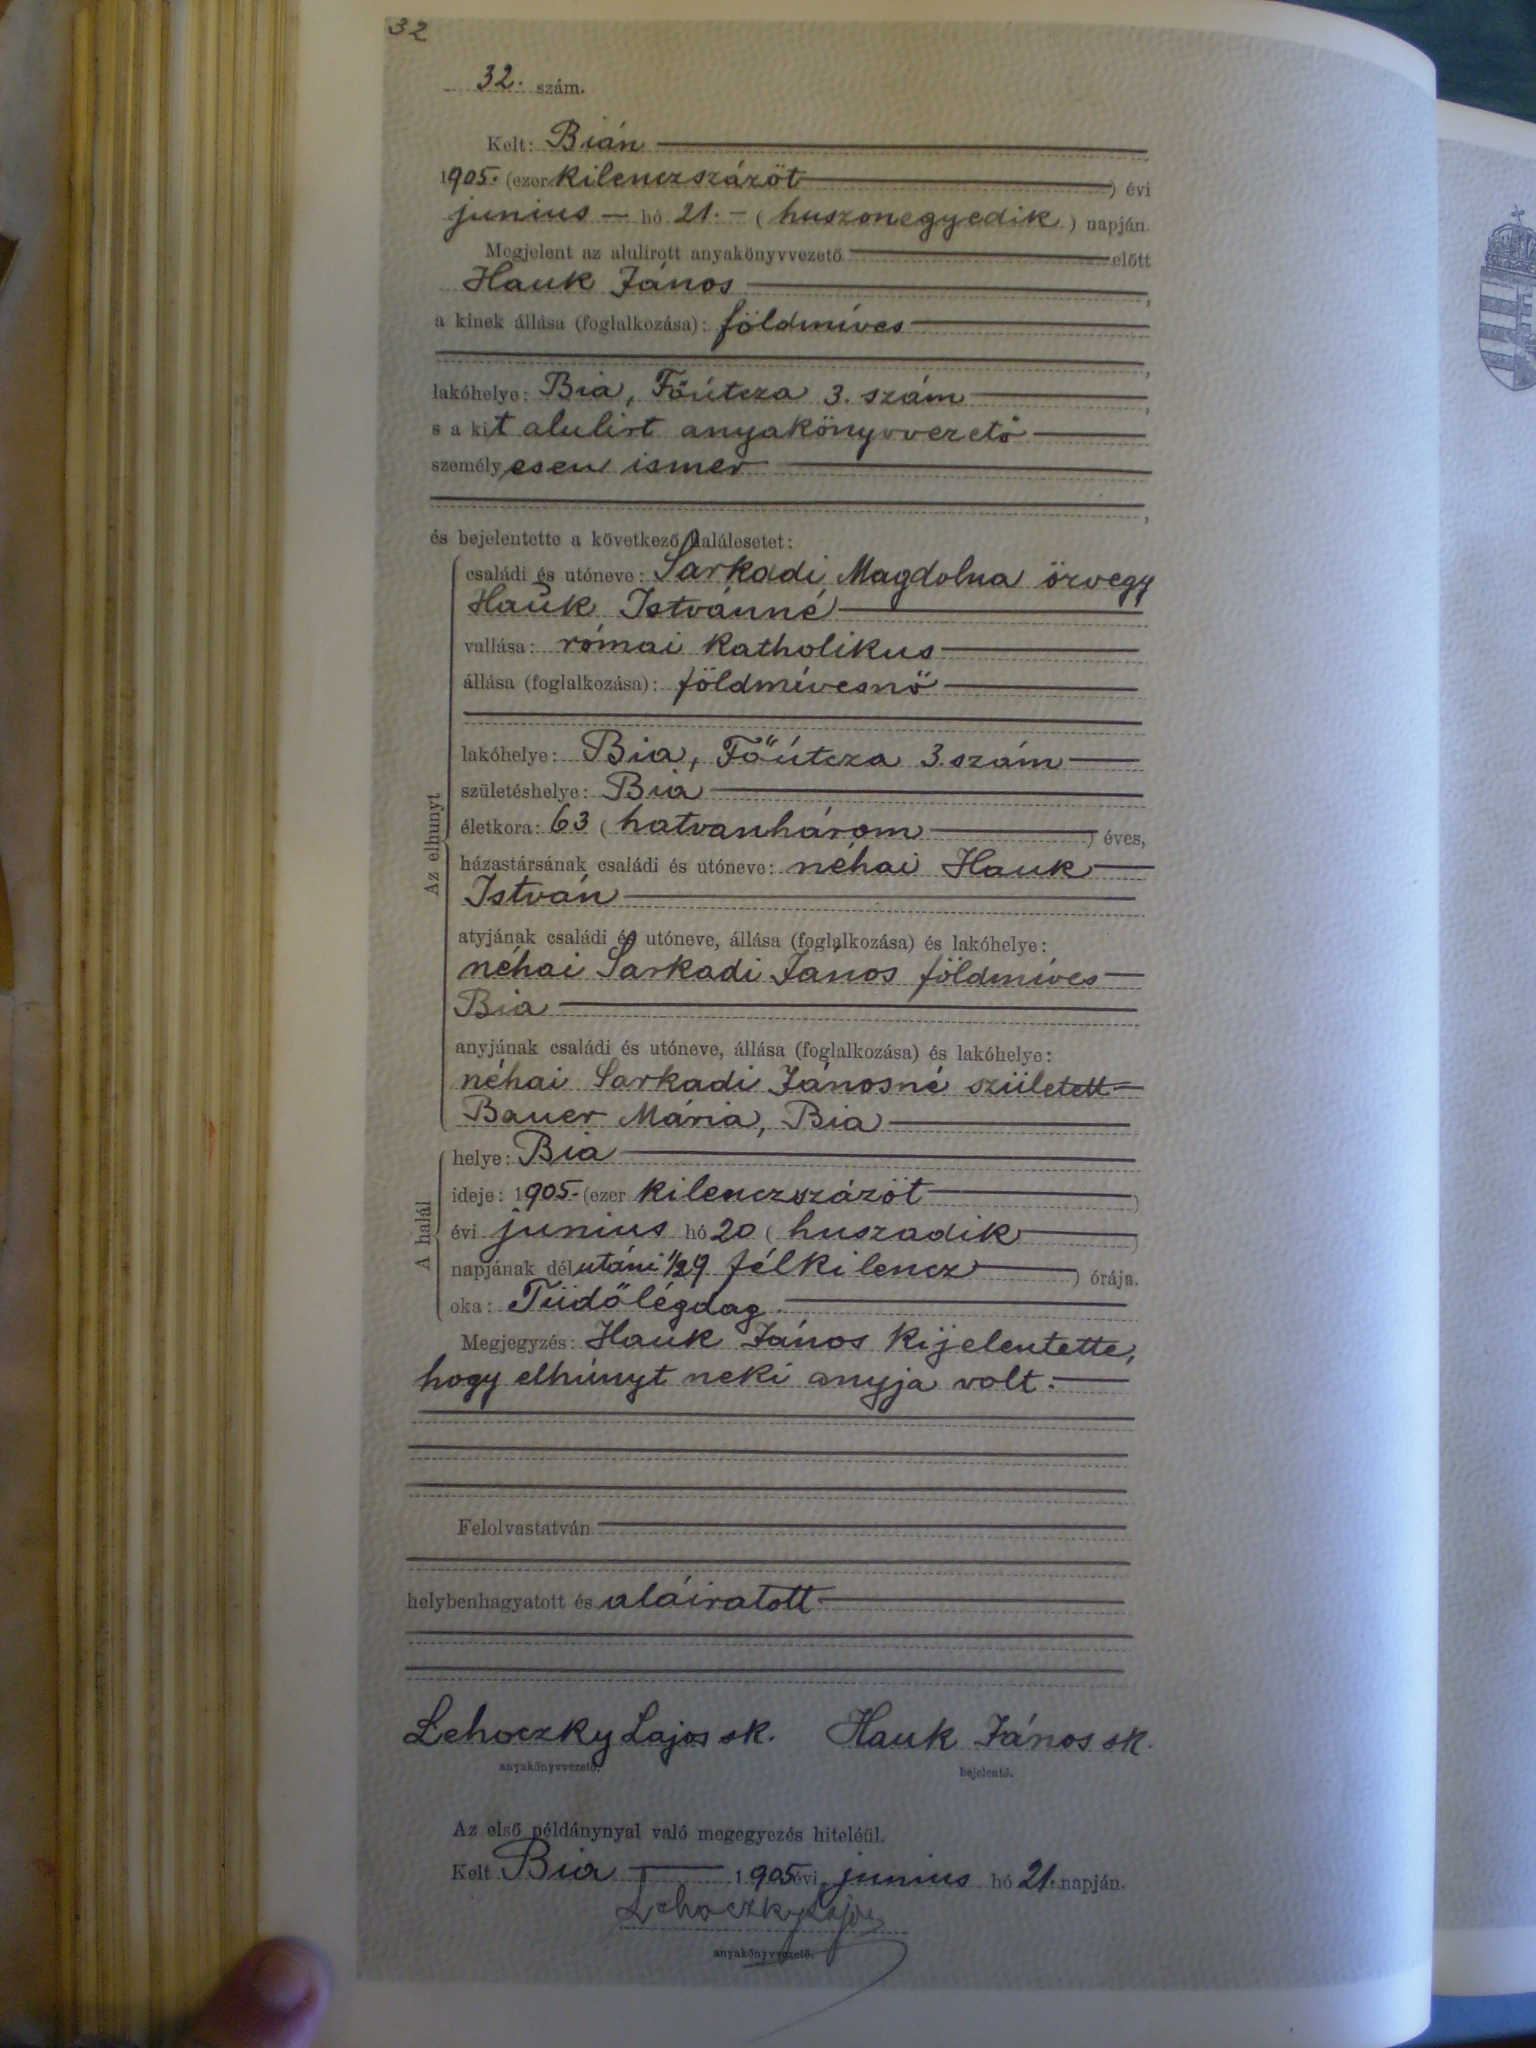 32
32. szám.
Kelt: Bián
1905. (ezer kilenczszázöt ) évi
junius hó 21. ( huszonegyedik ) napján.
Megjelent az alulirott anyakönyvvezető előtt
Hauk János ,
a kinek állása (foglalkozása): földmíves
,
lakóhelye: Bia, Főútcza 3. szám ,
s a kit alulirt anyakönyvvezető
személyesen ismer
,
és bejelentette a következő halálesetet:
Az elhunyt
családi és utóneve: Sarkadi Magdolna özvegy
Hauk Istvánné
vallása: római katholikus
állása (foglalkozása): földmívesnő
lakóhelye: Bia, Főútcza 3. szám
születéshelye: Bia
életkora: 63 ( hatvanhárom ) éves,
házastársának családi és utóneve: néhai Hauk
István
atyjának családi és utóneve, állása (foglalkozása) és lakóhelye:
néhai Sarkadi János földmíves
Bia
anyjának családi és utóneve, állása (foglalkozása) és lakóhelye:
néhai Sarkadi Jánosné született
Bauer Mária, Bia
A halál
helye: Bia
ideje: 1905. (ezer kilenczszázöt )
évi junius hó 20 ( huszadik )
napjának délutáni 1/29 félkilencz ) órája.
oka: Tüdőlégdag.
Megjegyzés: Hauk János kijelentette,
hogy elhúnyt neki anyja volt.
Felolvastatván
helybenhagyatott és aláiratott
Lehoczky Lajos sk. Hauk János sk.
anyakönyvvezető. bejelentő.
Az első példánynyal való megegyezés hiteléül.
Kelt Bia 1905 évi junius hó 21. napján.
Lehoczky Lajos
anyakönyvvezető.